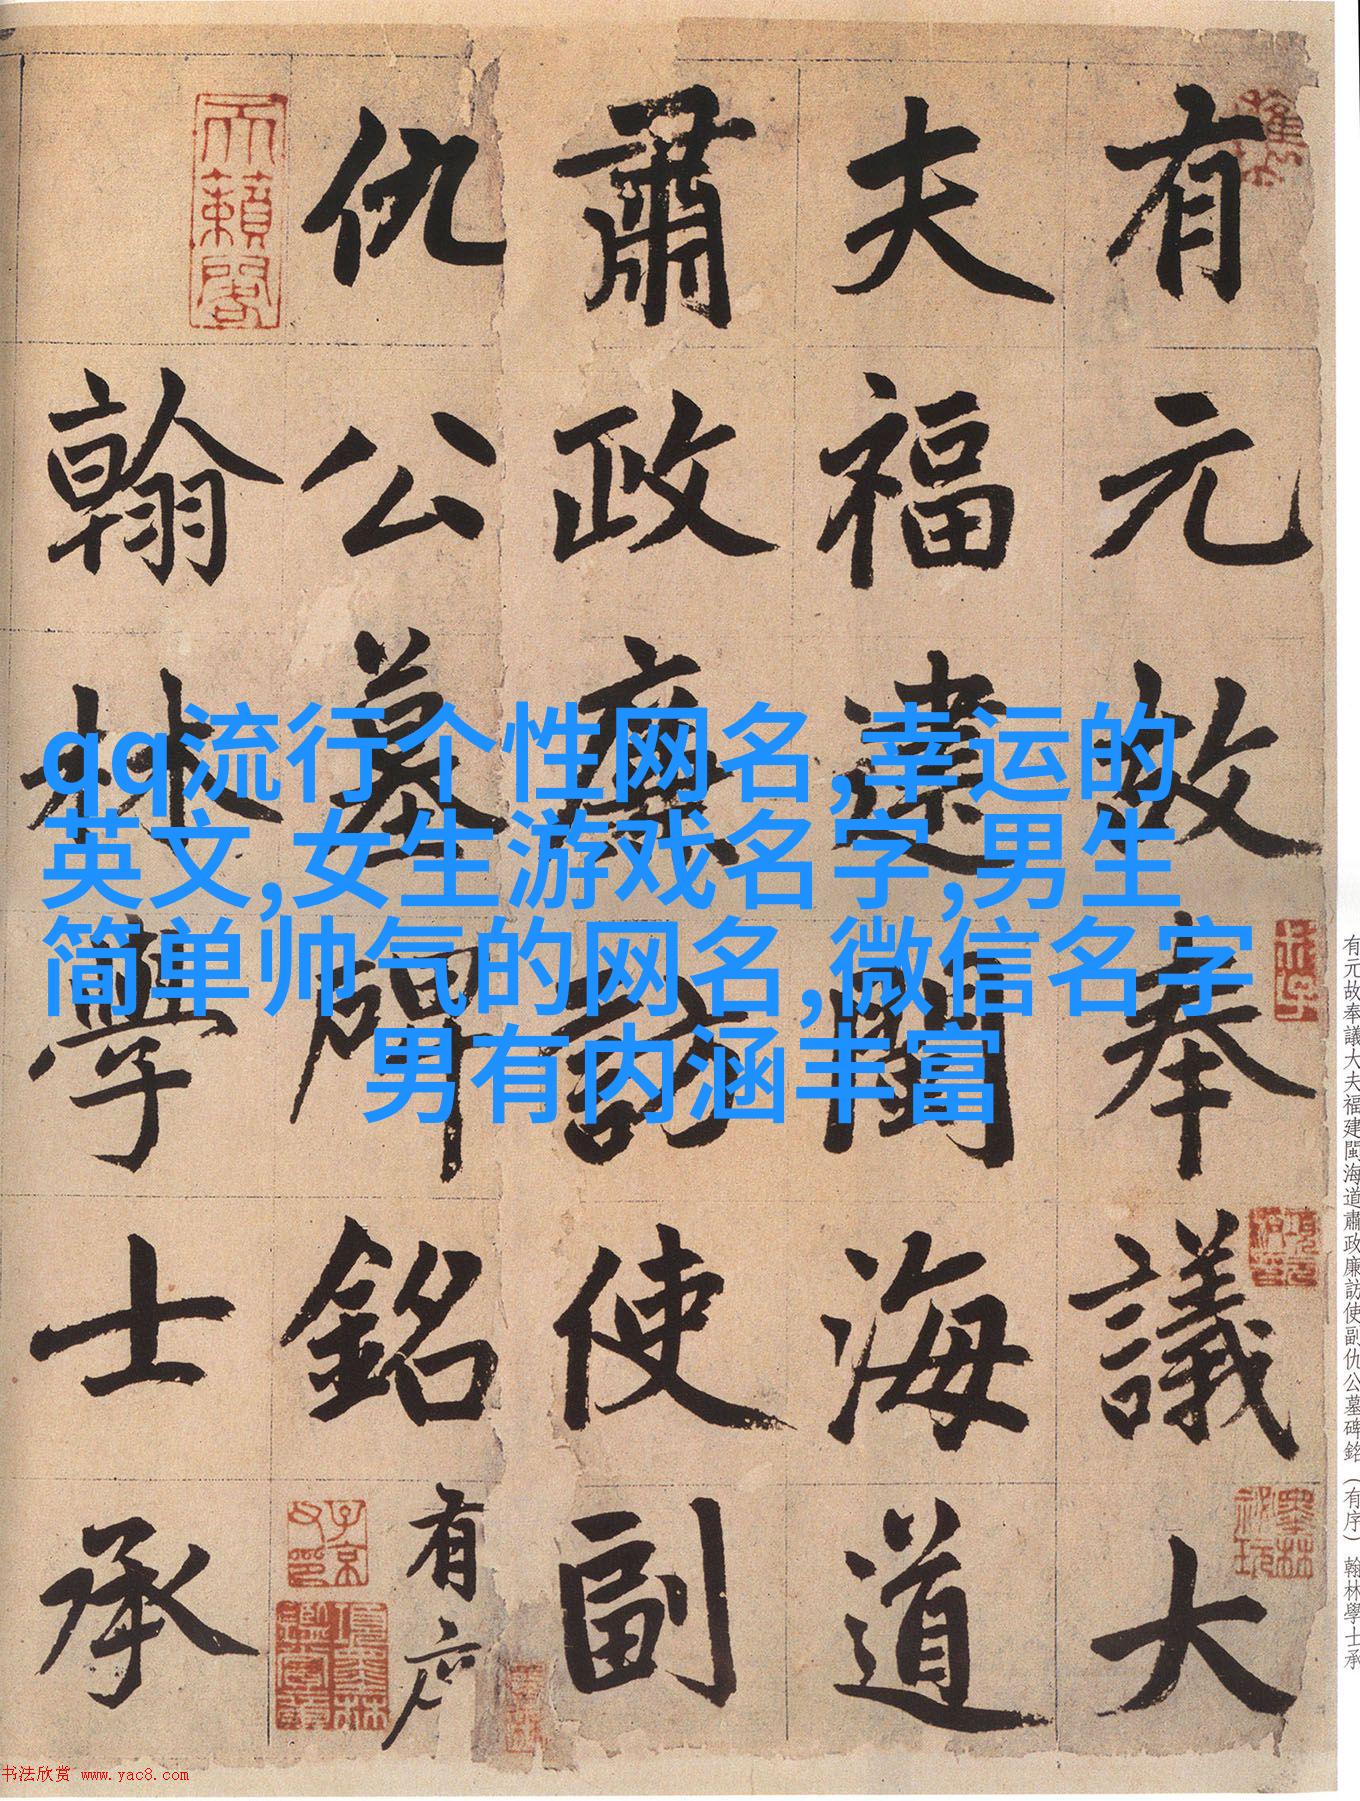 有元故奉議大
夫福建閩海道
肅政廉訪使副
仇公墓碑銘有序
翰林學士承
天籟閣
子京
qq流行个性网名,幸运的
英文,女生游戏名字,男生
简单帅气的网名,微信名字
男有内涵丰富
有元故奉議大夫福建閩海道肅政廉訪使副仇公墓碑銘（有序）翰林學士承
书法欣赏 www.yac8.com